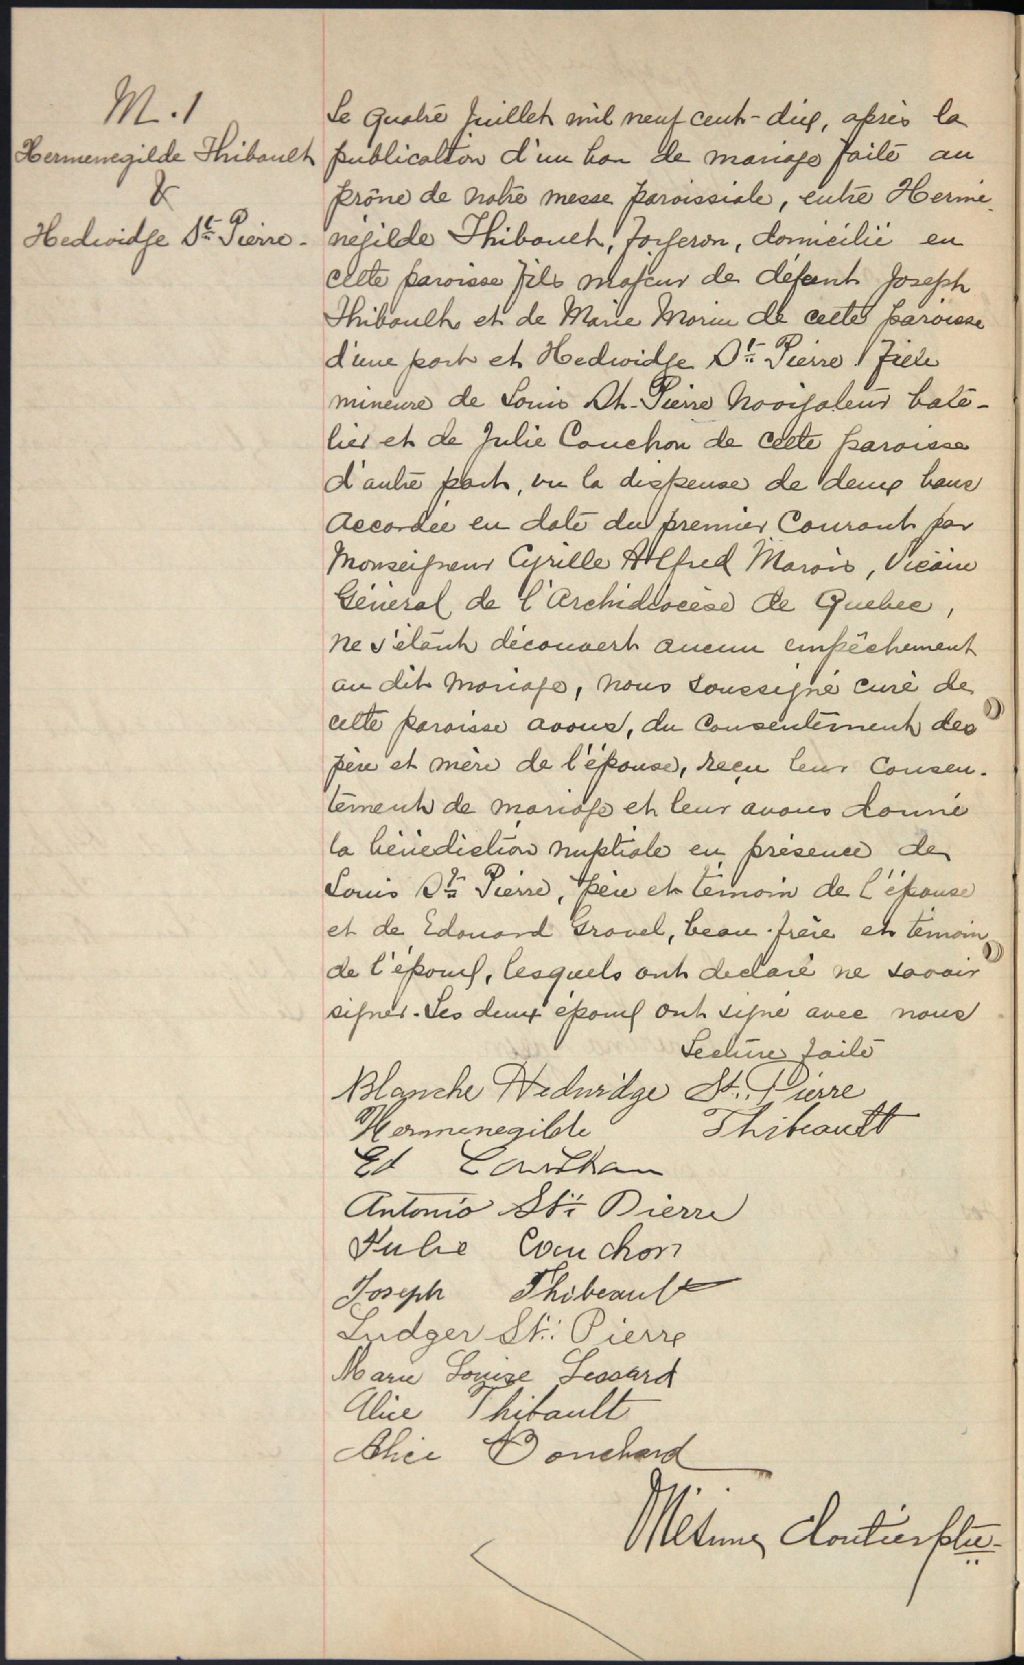 M. 1
Hermenegilde Thibault
&
Hedwidge St. Pierre.
Le quatre Juillet mil neuf cent-dix, après la
publication d'un ban de mariage faite au
prône de notre messe paroissiale, entre Hermé
négilde Thibault, forgeron, domicilié en
cette paroisse fils majeur de défunt Joseph
Thibault et de Marie Morin de cette paroisse
d'une part et Hedwidge St. Pierre fille
mineure de Louis St-Pierre Navigateur bate-
lier et de Julie Couchon de cette paroisse
d'autre part, vu la dispense de deux bans
accordée en date du premier Courant par
Monseigneur Cyrille Alfred Marois, Vicaire
Général de l'Archidiocèse de Quebec,
ne s'étant découvert aucun empêchement
au dit mariage, nous soussigné curé de
cette paroisse avons, du consentement des
père et mère de l'épouse, reçu leur consen-
tement de mariage et leur avons donné
la bénédiction nuptiale en présence de
Louis St. Pierre, père et témoin de l'épouse
et de Edouard Gravel, beau-frère et témoin
de l'époux, lesquels ont declaré ne savoir
signer. Les deux époux ont signé avec nous
Lecture faite
Blanche Hedwidge St. Pierre
Hermenegilde Thibeault
Ed
Antonio St. Pierre
Julie Couchon
Joseph Thibeault
Ludger St. Pierre
Marie Louise Lessard
Alice Thibault
Alice Bouchard
Cloutier ptre